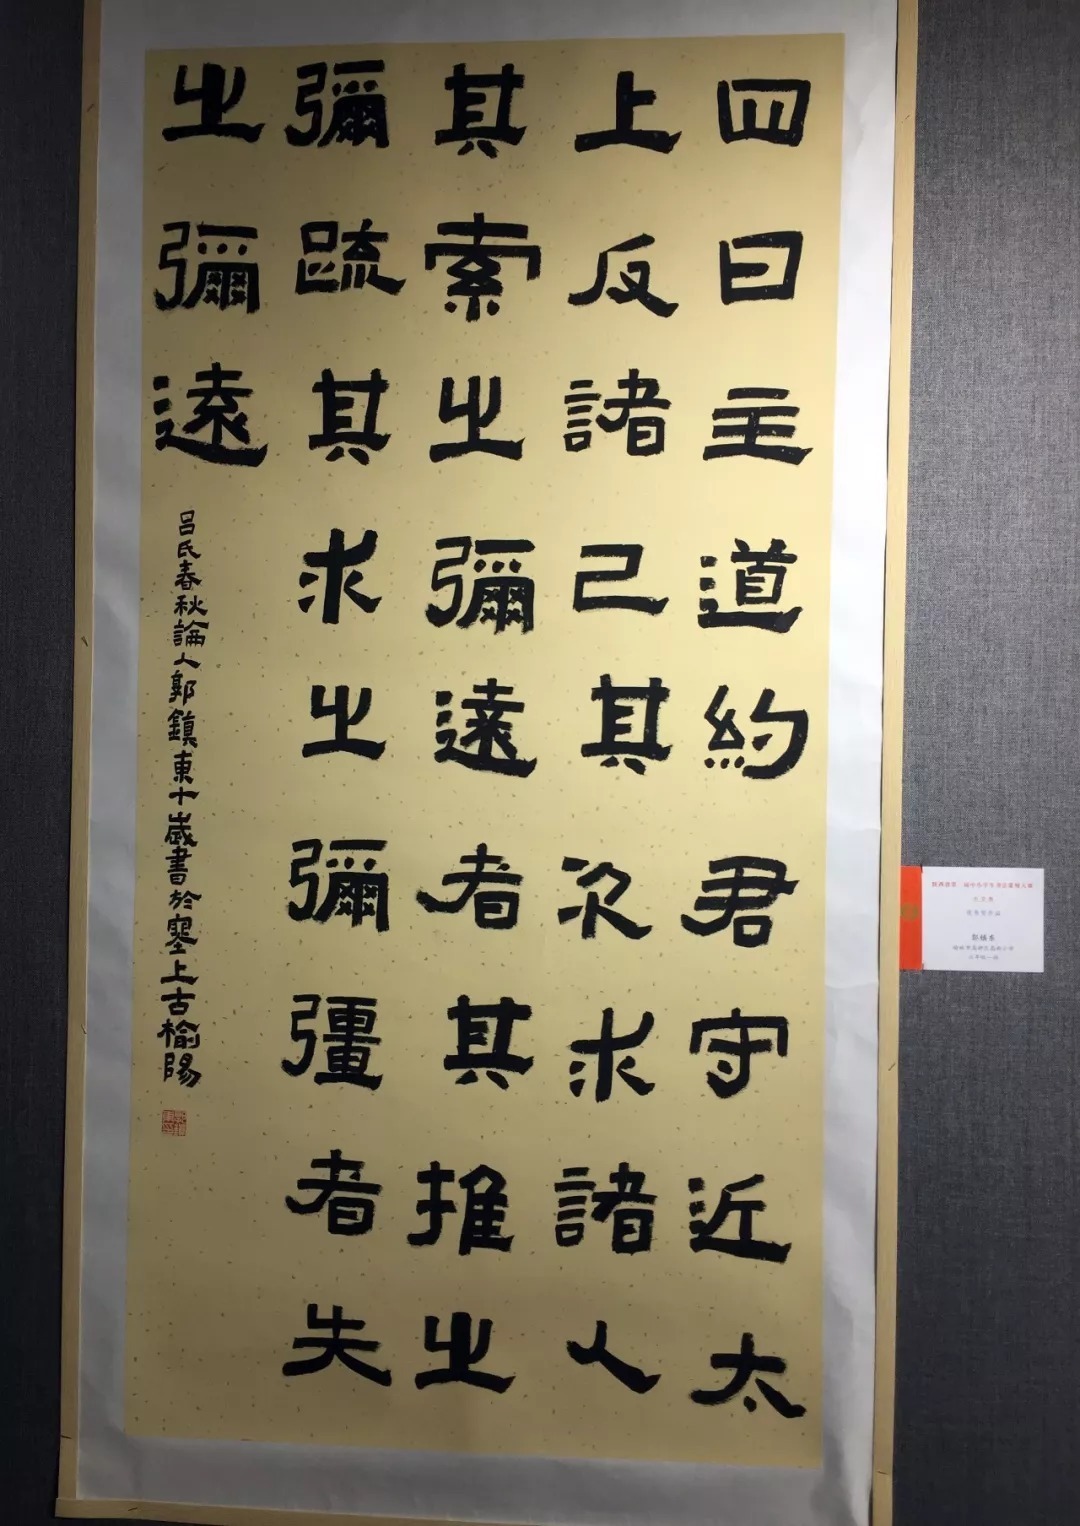 四曰主道約君守近太
上反諸己其次求諸人
其索之彌遠者其推之
彌疏其求之彌彊者失
之彌遠
呂氏春秋論人郭鎮東十歲書於塞上古榆陽